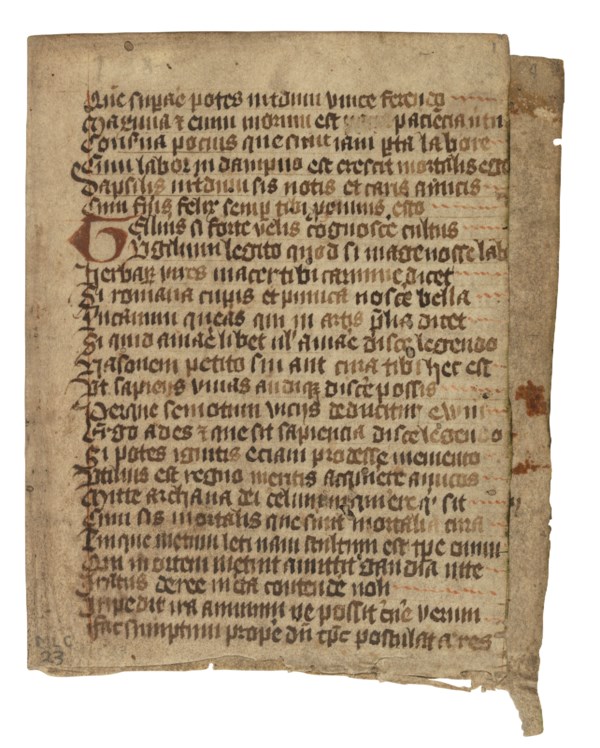 Que sup̱are potes int̄dum vince ferendo
Maxima & enim morum est paciēcia virtu
Conserva pocius que sunt iam pta labore
Cum labor in dampno est crescit mortalis ege
Dapsilis int̄dum sis notis et caris amicis
Cum fūis felix semp tibi p̄ximus esto
Tellus si forte velis cōgnosc̄e cultus
Virgilium legito quod si mage nosse lab
Herbaꝝ vires macer tibi carmine dicet
Si romana cupis et punica nosc̄e bella
Lucanum queras qui martis p̄lia dicet
Si quid amar̄e libet ul' amar̄e disc̄e legendo
Nasonem petito sin aut cura tibi hec est
Vt sapiens vivas audi qꝫ disc̄e possis
Per que semotum viciis deducitur evum
Ergo ades & que sit sapiencia disce legendo
Si potes ignotis eciam prodesse memento
Vtilius est regno meritis acquirere amicos
Mitte archana dei celumqꝫ inquirere qͥ sit
Cum sis mortalis que sunt mortalia cura
Linque metum leti nam stultum est tpē cunu
Dum mortem metuit amittit gaudia vite
Iratus de re incerta contende noli
Impedit ira animum ne possit cn̄e verum
Fac sumptum propere dū tp̄c postulat a res
MLC
23